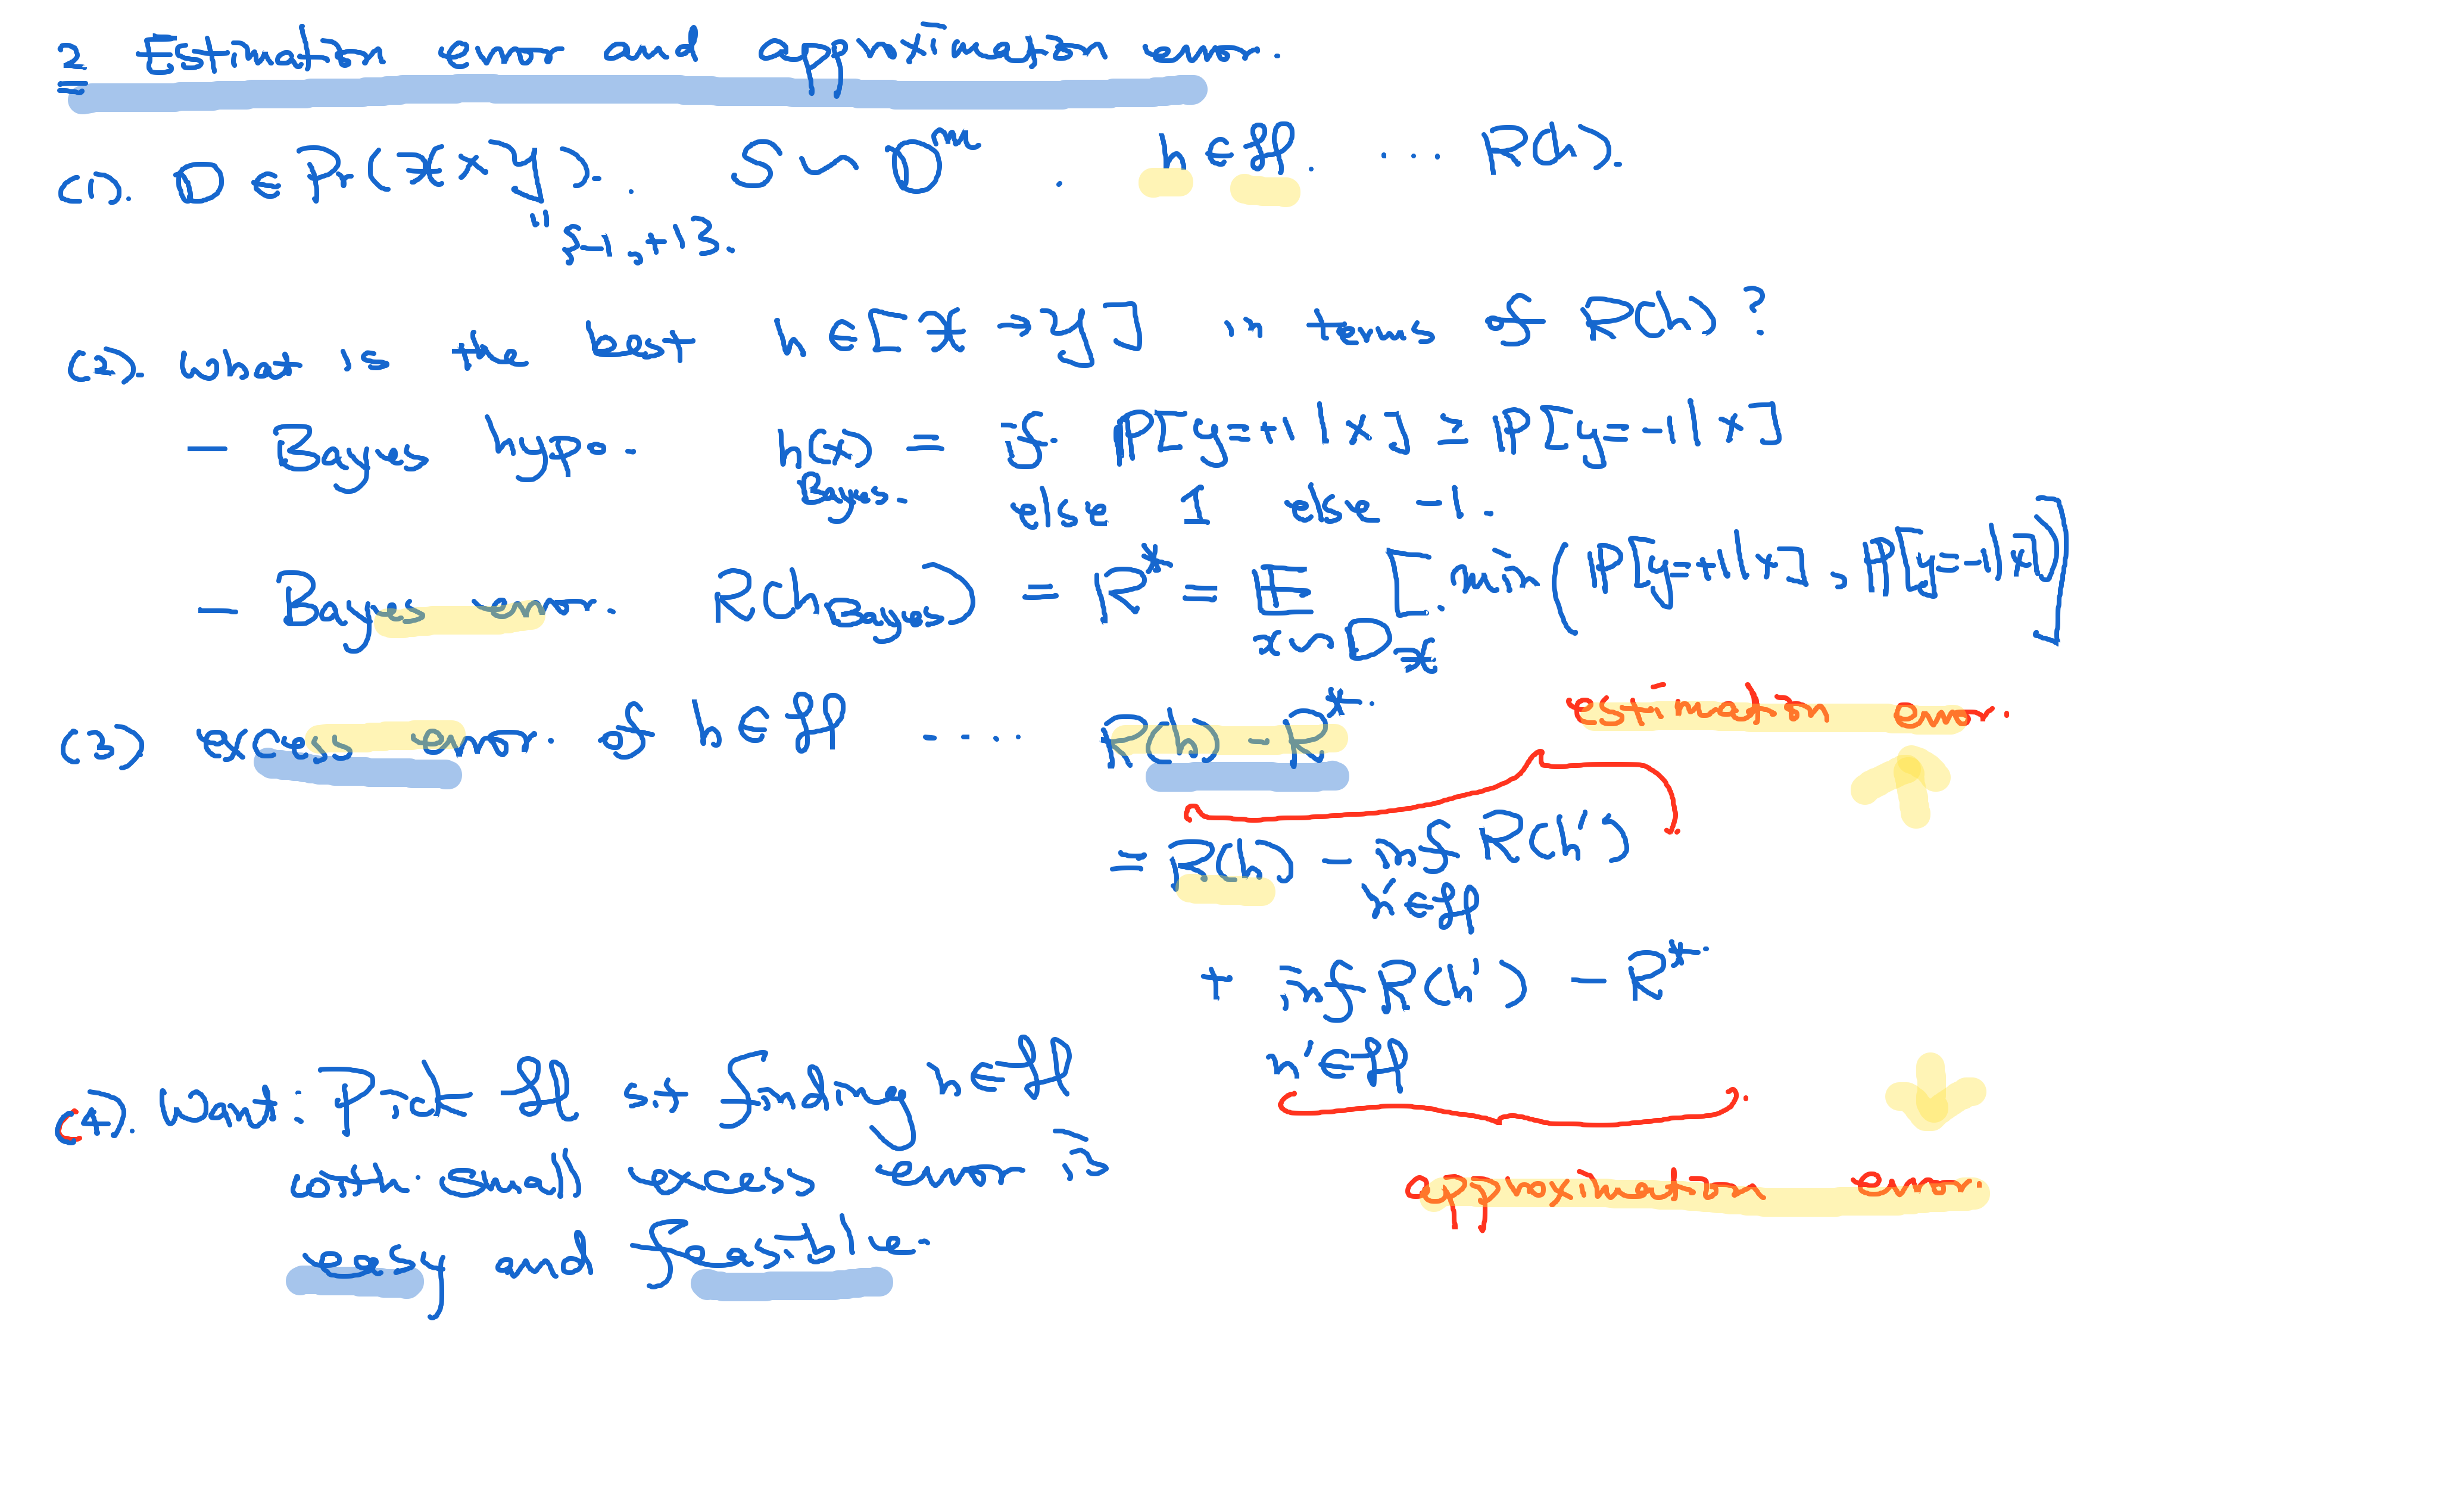 2 Estimation error and approximation error.
(1). D ∈ Pr(X × Y). S ~ D^m. h ∈ H. ... R(h).
" {-1, +1}.
(2). What is the best h ∈ [X → Y] in terms of R(h)?
- Bayes hypo. h(x) = if P[y=+1|x] ≥ P[y=-1|x]
Bayes. else 1 else -1.
- Bayes error. R(h_Bayes) = R* = E_{x~D_X} [min(P[y=+1|x], P[y=-1|x])]
(3) excess error of h ∈ H .... R(h) - R*.
estimation error.
= R(h) - inf_{h'∈H} R(h')
+ inf_{h'∈H} R(h') - R*.
approximation error.
(4). Want: Pick H s.t. finding h ∈ H
with small excess error is
easy and feasible.